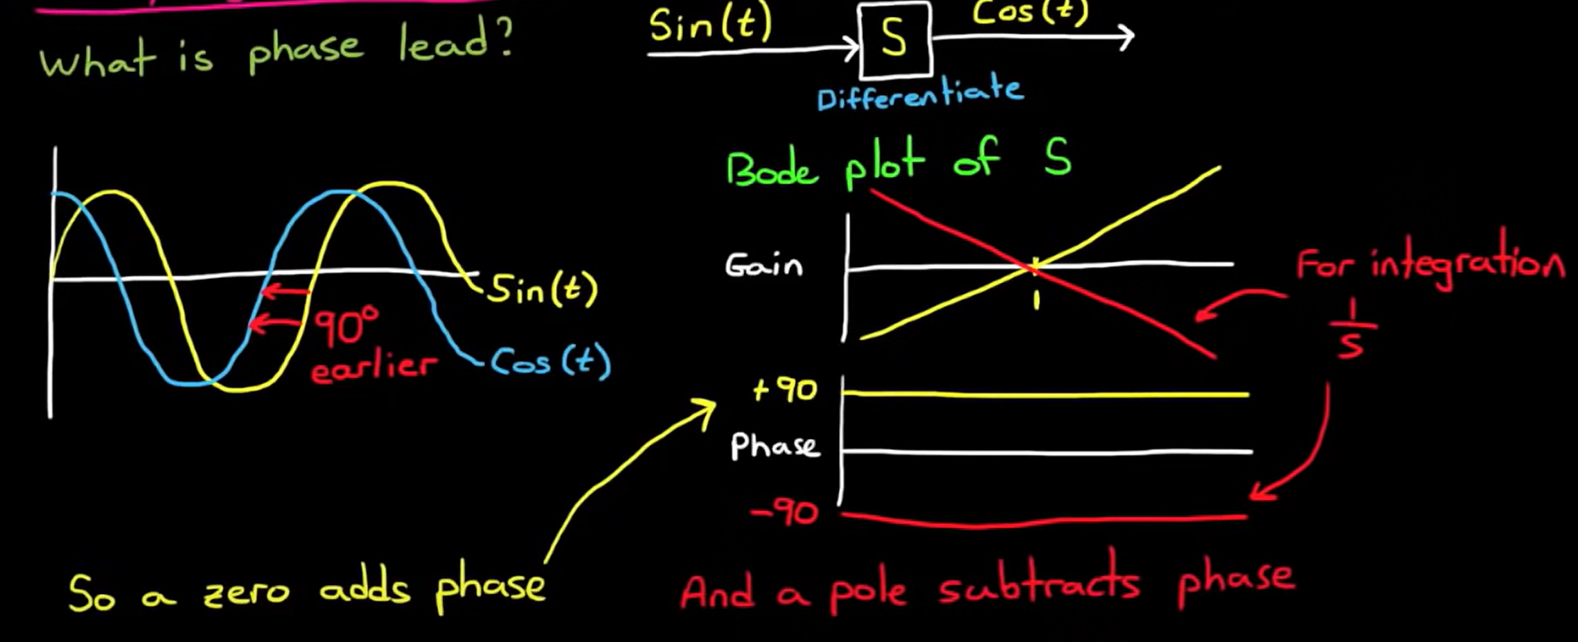 What is phase lead?
Sin(t)
S
Cos(t)
Differentiate
Sin(t)
90°
earlier
Cos(t)
Bode plot of S
Gain
1
For integration
1
S
+90
Phase
-90
So a zero adds phase
And a pole subtracts phase